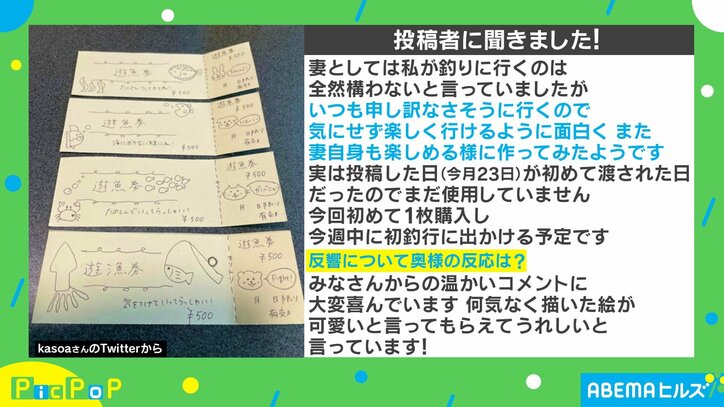 遊魚券
¥500
たのしんでいってらっしゃい!
¥500
遊漁券
気をつけていってらっしゃい!
¥500
遊魚券
¥500
月 日
有効
Fight!
月 日
kasoaさんのTwitterから
投稿者に聞きました!
妻としては私が釣りに行くのは
全然構わないと言っていましたが
いつも申し訳なさそうに行くので
気にせず楽しく行けるように面白く また
妻自身も楽しめる様に作ってみたようです
実は投稿した日(今月23日)が初めて渡された日
だったのでまだ使用していません
今回初めて1枚購入し
今週中に初釣行に出かける予定です
反響について奥様の反応は?
みなさんからの温かいコメントに
大変喜んでいます 何気なく描いた絵が
可愛いと言ってもらえてうれしいと
言っています!
PicPoP
ABEMAヒルズ